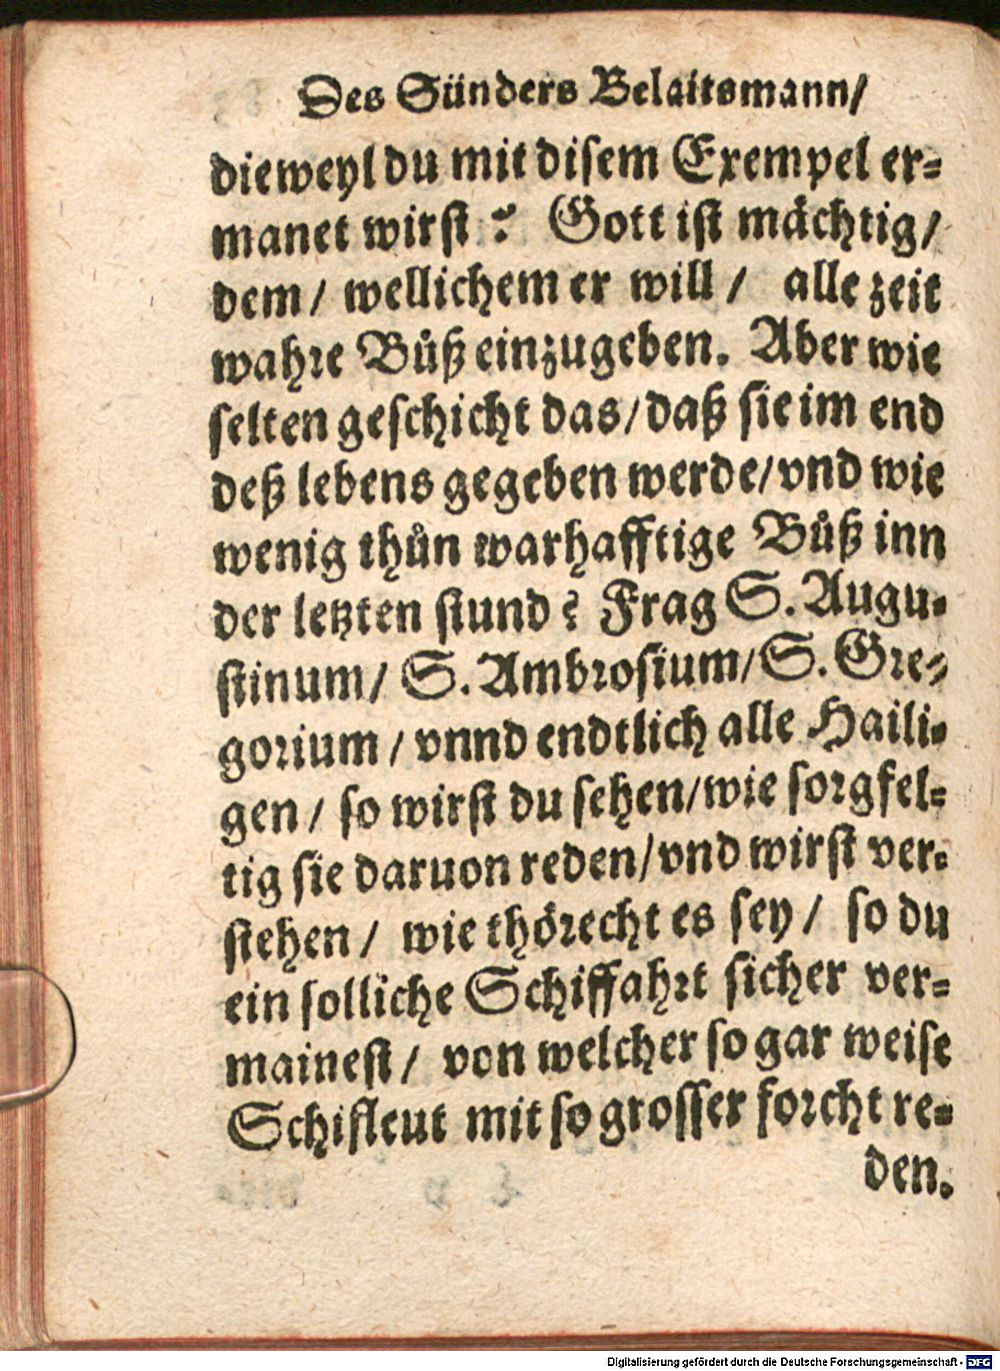 Des Sünders Belaitsmann/
dieweyl du mit disem Exempel er-
manet wirst? Gott ist mächtig/
dem/ wellichem er will/ alle zeit
wahre Bůß einzugeben. Aber wie
selten geschicht das/daß sie im end
deß lebens gegeben werde/vnd wie
wenig thůn warhafftige Bůß inn
der letzten stund? Frag S. Augu-
stinum/ S. Ambrosium/S. Gre-
gorium/ vnnd endtlich alle Haili-
gen/ so wirst du sehen/wie sorgfel-
tig sie daruon reden/vnd wirst ver-
stehen/ wie thörecht es sey/ so du
ein solliche Schiffahrt sicher ver-
mainest/ von welcher so gar weise
Schifleut mit so grosser forcht re-
den.
Digitalisierung gefördert durch die Deutsche Forschungsgemeinschaft - DFG